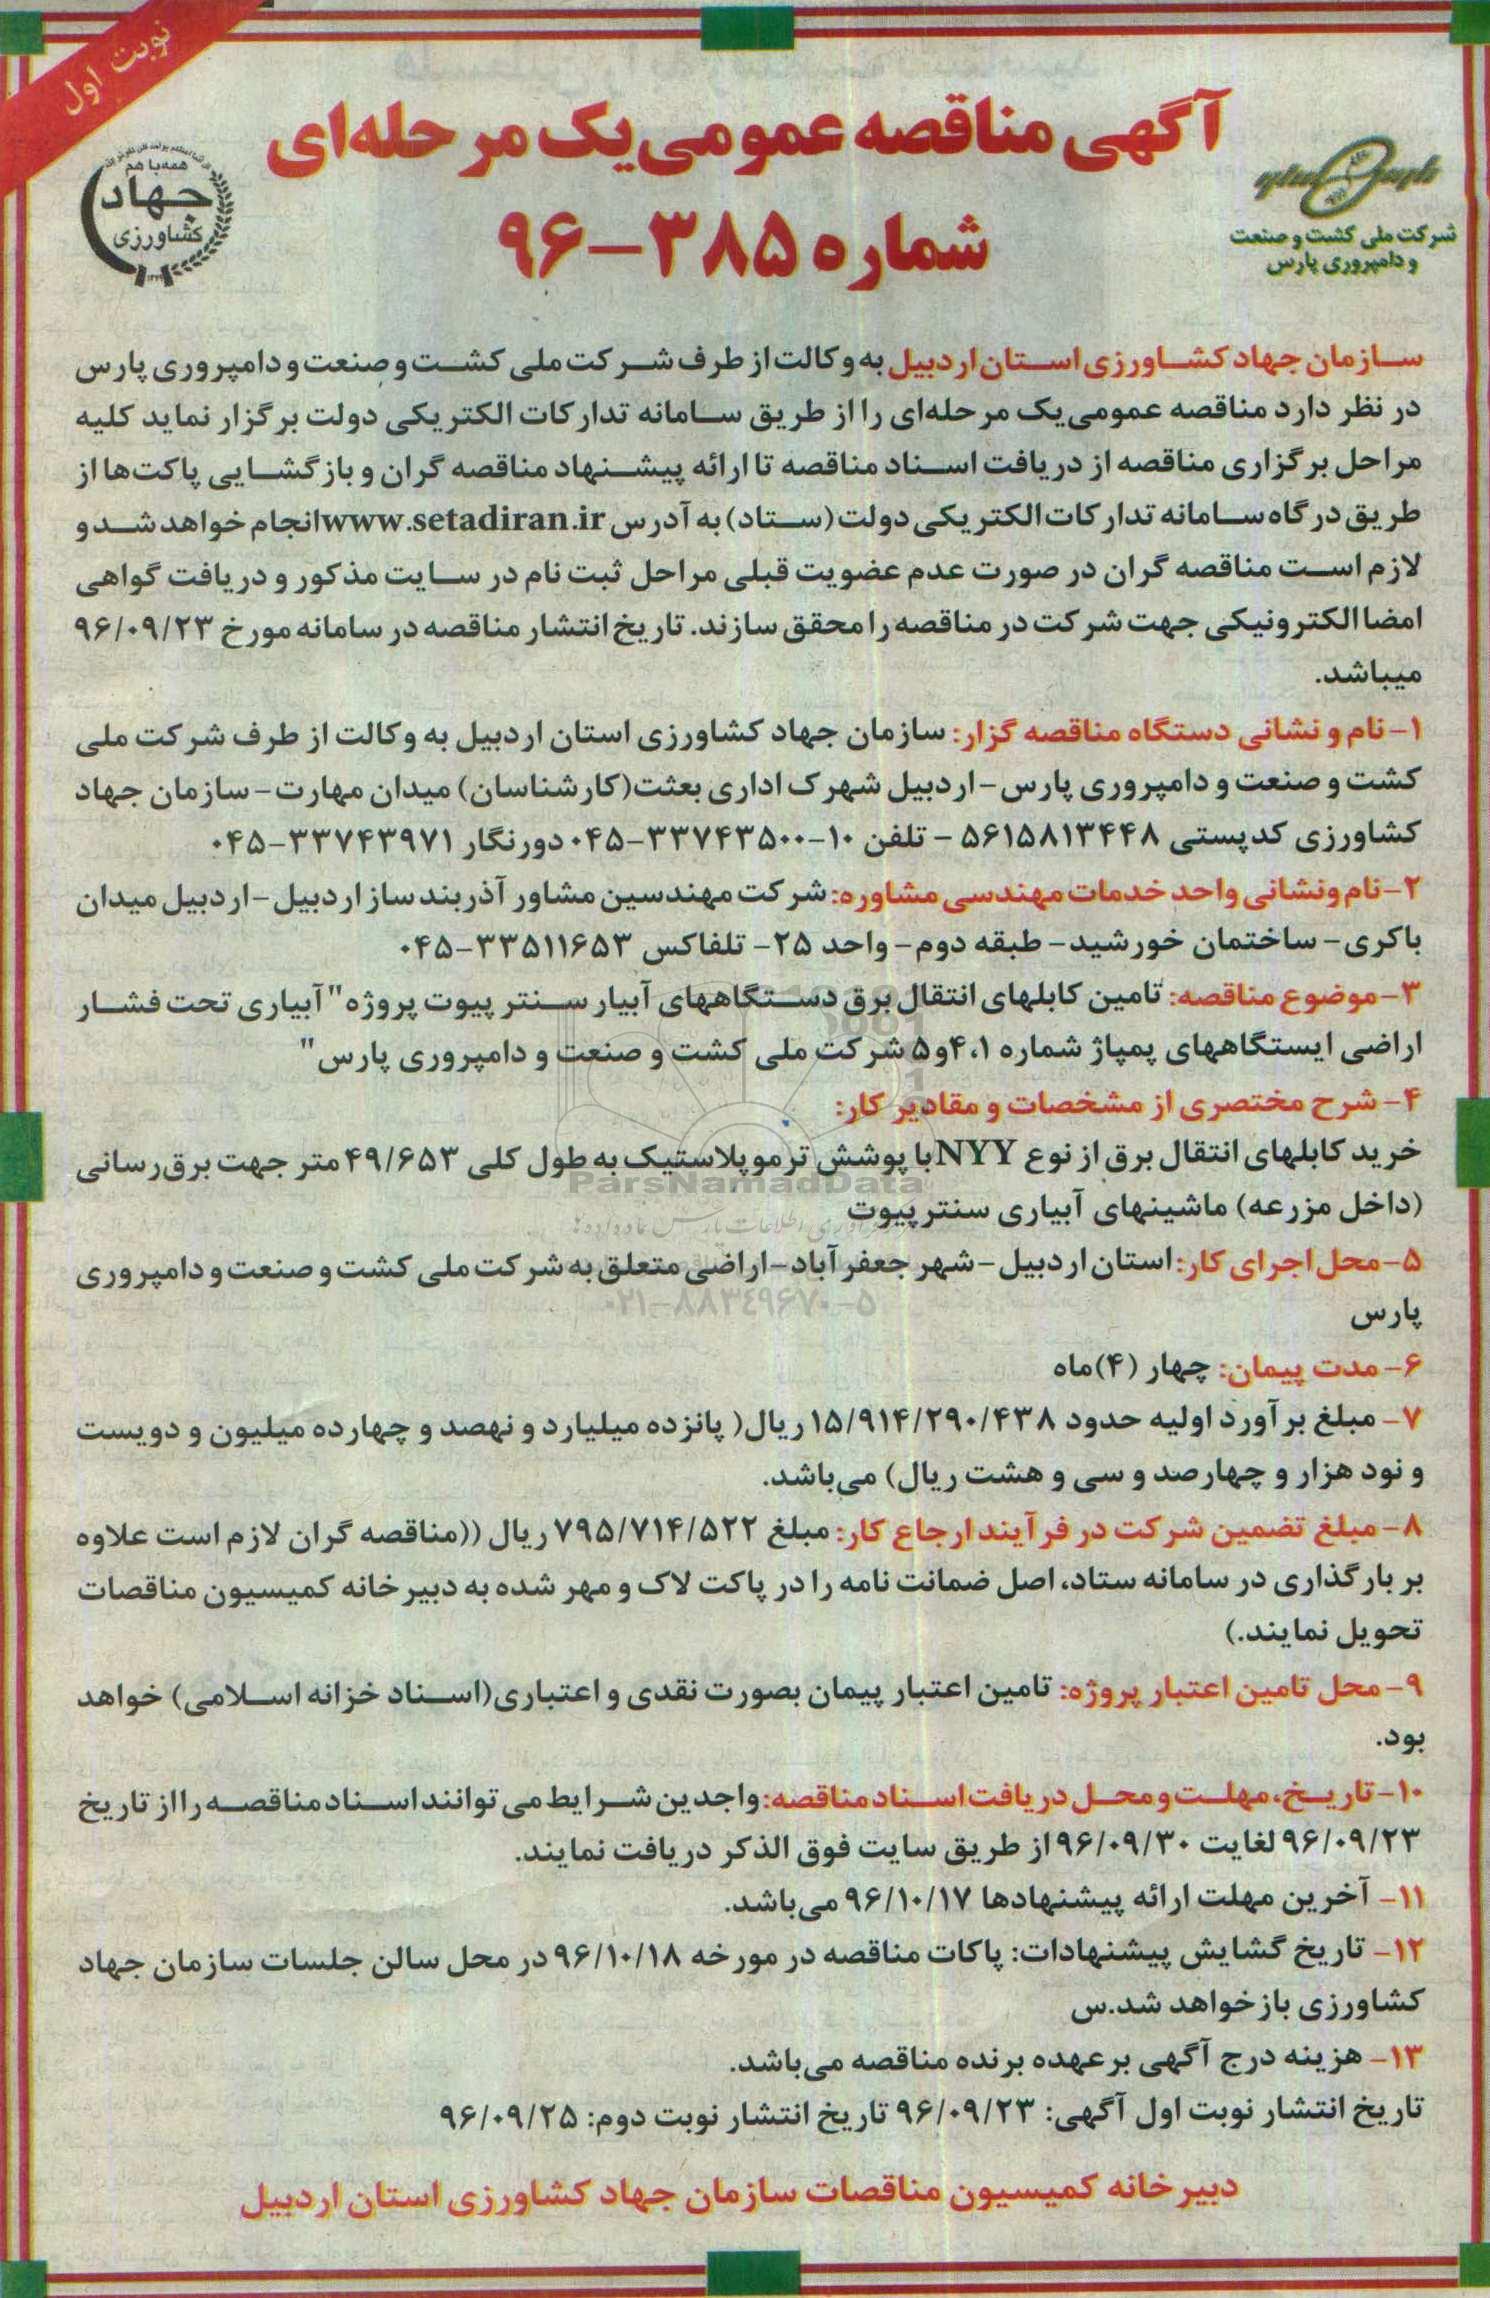 نوبت اول
آگهی مناقصه عمومی یک مرحله‌ای
شماره ۳۸۵-۹۶
همه با هم
جهاد
کشاورزی
شرکت ملی کشت و صنعت
و دامپروری پارس
سازمان جهاد کشاورزی استان اردبیل به وکالت از طرف شرکت ملی کشت و صنعت و دامپروری پارس
در نظر دارد مناقصه عمومی یک مرحله‌ای را از طریق سامانه تدارکات الکتریکی دولت برگزار نماید کلیه
مراحل برگزاری مناقصه از دریافت اسناد مناقصه تا ارائه پیشنهاد مناقصه گران و بازگشایی پاکت‌ها از
طریق درگاه سامانه تدارکات الکتریکی دولت (ستاد) به آدرس www.setadiran.ir انجام خواهد شد و
لازم است مناقصه گران در صورت عدم عضویت قبلی مراحل ثبت نام در سایت مذکور و دریافت گواهی
امضا الکترونیکی جهت شرکت در مناقصه را محقق سازند. تاریخ انتشار مناقصه در سامانه مورخ ۹۶/۰۹/۲۳
میباشد.
۱- نام و نشانی دستگاه مناقصه گزار: سازمان جهاد کشاورزی استان اردبیل به وکالت از طرف شرکت ملی
کشت و صنعت و دامپروری پارس - اردبیل شهرک اداری بعثت (کارشناسان) میدان مهارت - سازمان جهاد
کشاورزی کدپستی ۵۶۱۵۸۱۳۴۴۸ - تلفن ۱۰-۰۴۵-۳۳۷۴۳۵۰۰ دورنگار ۰۴۵-۳۳۷۴۳۹۷۱
۲- نام ونشانی واحد خدمات مهندسی مشاوره: شرکت مهندسین مشاور آذربند ساز اردبیل - اردبیل میدان
باکری - ساختمان خورشید - طبقه دوم - واحد ۲۵ - تلفاکس ۰۴۵-۳۳۵۱۱۶۵۳
۳- موضوع مناقصه: تامین کابلهای انتقال برق دستگاههای آبیار سنتر پیوت پروژه "آبیاری تحت فشار
اراضی ایستگاههای پمپاژ شماره ۴،۱و۵ شرکت ملی کشت و صنعت و دامپروری پارس"
۴- شرح مختصری از مشخصات و مقادیر کار:
خرید کابلهای انتقال برق از نوع NYY با پوشش ترموپلاستیک به طول کلی ۴۹/۶۵۳ متر جهت برق‌رسانی
ParsNamadData
(داخل مزرعه) ماشینهای آبیاری سنترپیوت
۵- محل اجرای کار: استان اردبیل - شهر جعفرآباد - اراضی متعلق به شرکت ملی کشت و صنعت و دامپروری
۰۲۱-۸۸۳۴۹۶۷۰-۵
پارس
۶- مدت پیمان: چهار (۴) ماه
۷- مبلغ برآورد اولیه حدود ۱۵/۹۱۴/۲۹۰/۴۳۸ ریال( پانزده میلیارد و نهصد و چهارده میلیون و دویست
و نود هزار و چهارصد و سی و هشت ریال) می‌باشد.
۸- مبلغ تضمین شرکت در فرآیند ارجاع کار: مبلغ ۷۹۵/۷۱۴/۵۲۲ ریال ((مناقصه گران لازم است علاوه
بر بارگذاری در سامانه ستاد، اصل ضمانت نامه را در پاکت لاک و مهر شده به دبیرخانه کمیسیون مناقصات
تحویل نمایند.)
۹- محل تامین اعتبار پروژه: تامین اعتبار پیمان بصورت نقدی و اعتباری (اسناد خزانه اسلامی) خواهد
بود.
۱۰- تاریخ، مهلت و محل دریافت اسناد مناقصه: واجدین شرایط می توانند اسناد مناقصه را از تاریخ
۹۶/۰۹/۲۳ لغایت ۹۶/۰۹/۳۰ از طریق سایت فوق الذکر دریافت نمایند.
۱۱- آخرین مهلت ارائه پیشنهادها ۹۶/۱۰/۱۷ می‌باشد.
۱۲- تاریخ گشایش پیشنهادات: پاکات مناقصه در مورخه ۹۶/۱۰/۱۸ در محل سالن جلسات سازمان جهاد
کشاورزی باز خواهد شد.س
۱۳- هزینه درج آگهی برعهده برنده مناقصه می‌باشد.
تاریخ انتشار نوبت اول آگهی: ۹۶/۰۹/۲۳ تاریخ انتشار نوبت دوم: ۹۶/۰۹/۲۵
دبیرخانه کمیسیون مناقصات سازمان جهاد کشاورزی استان اردبیل